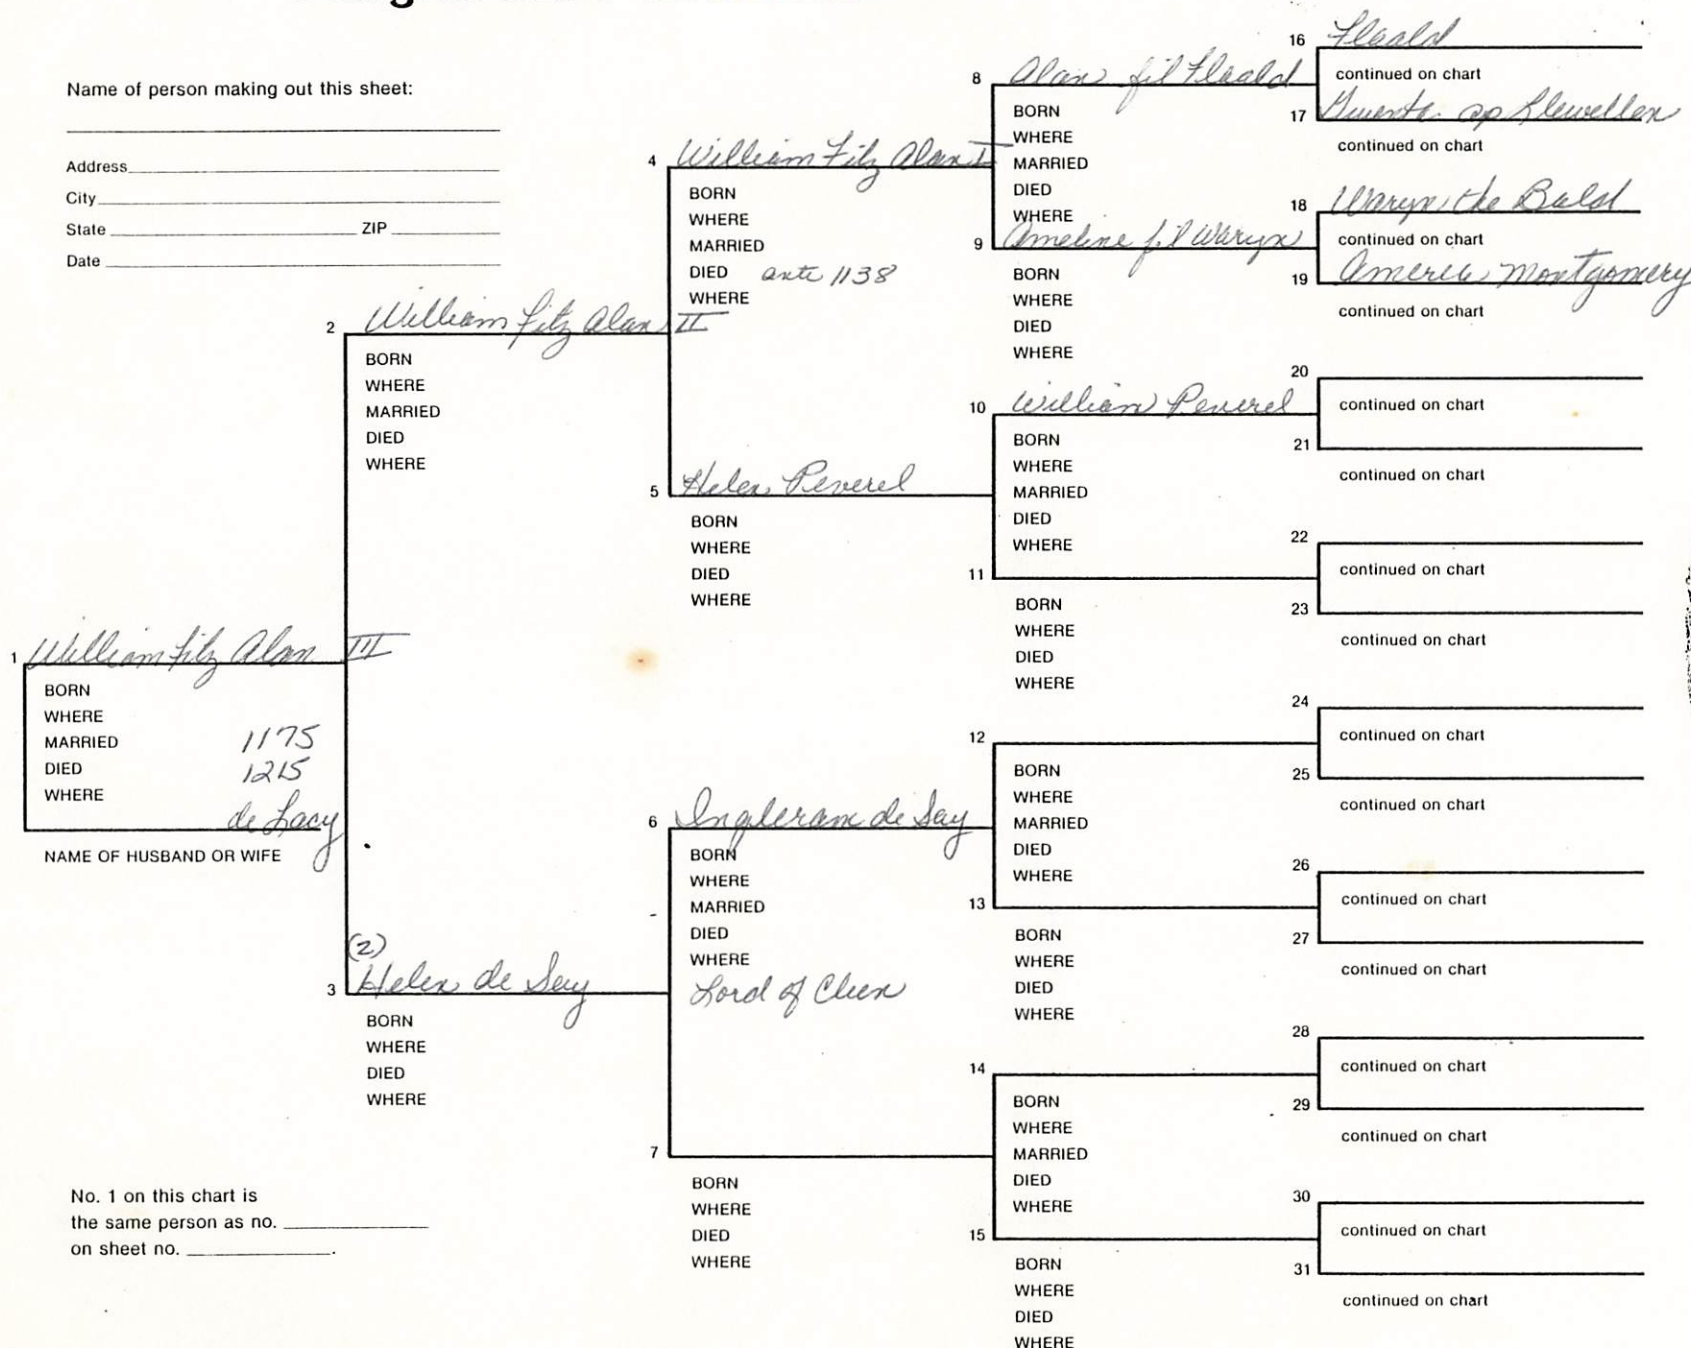 Name of person making out this sheet:
Address
City
State ZIP
Date
1 William Fitz Alan III
BORN
WHERE
MARRIED 1175
DIED 1215
WHERE
de Lacy
NAME OF HUSBAND OR WIFE
No. 1 on this chart is
the same person as no.
on sheet no. .
2 William Fitz Alan II
BORN
WHERE
MARRIED
DIED
WHERE
(2)
3 Helen de Say
BORN
WHERE
DIED
WHERE
4 William Fitz Alan I
BORN
WHERE
MARRIED
DIED ante 1138
WHERE
5 Helen Peverel
BORN
WHERE
DIED
WHERE
6 Ingleram de Say
BORN
WHERE
MARRIED
DIED
WHERE
Lord of Clun
7
BORN
WHERE
DIED
WHERE
8 Alan fil Flaald
BORN
WHERE
MARRIED
DIED
WHERE
9 Ameline fil Waryn
BORN
WHERE
DIED
WHERE
10 William Peverel
BORN
WHERE
MARRIED
DIED
WHERE
11
BORN
WHERE
DIED
WHERE
12
BORN
WHERE
MARRIED
DIED
WHERE
13
BORN
WHERE
DIED
WHERE
14
BORN
WHERE
MARRIED
DIED
WHERE
15
BORN
WHERE
DIED
WHERE
16 Flaald
continued on chart
17 ap Llewellen
continued on chart
18 Waryn the Bald
continued on chart
19 Ameria Montgomery
continued on chart
20
continued on chart
21
continued on chart
22
continued on chart
23
continued on chart
24
continued on chart
25
continued on chart
26
continued on chart
27
continued on chart
28
continued on chart
29
continued on chart
30
continued on chart
31
continued on chart